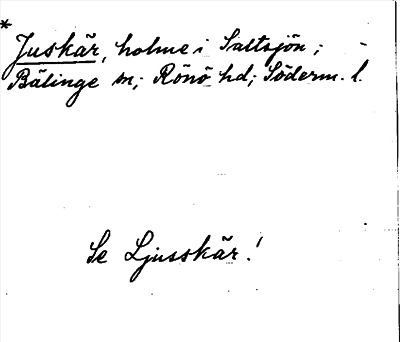 *
Juskär, holme i Saltsjön; -
Bälinge sn; Rönö hd; Söderm. l.
Se Ljusskär!